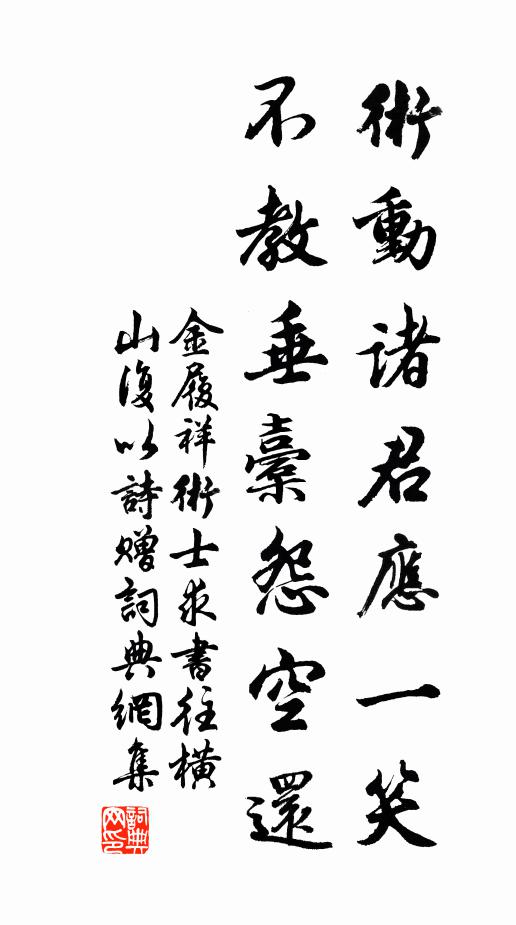 術動諸君應一笑
不教垂橐怨空還
金履祥術士求書往橫
山復以詩贈詞典網集
詞典網印